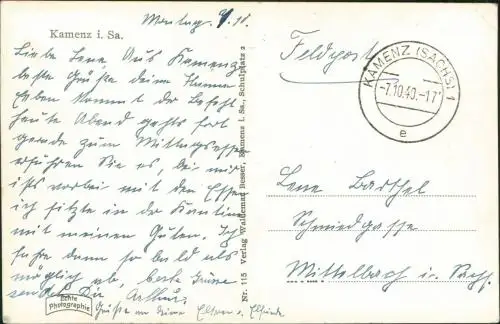 Kamenz i. Sa.
Montag,
Liebe Lene, Aus Kamenz
beste Grüße deine
Eben kommt der Befehl
heute Abend gehts fort
gerade zum Mittagessen
erfuhren Sie es, bei mir
ists vorbei mit den Essen
ich sitzte in der Kantine
mit meinen Guten. Ich
fahre dann so bald als
möglich ab, beste Grüsse
sendet Dir Arthur.
Grüße an deine Eltern u. Elfriede
Echte
Photographie
Nr. 115 Verlag Waldemar Besser, Kamenz i. Sa., Schulplatz 2
Feldpost
KAMENZ (SACHS) 1
-7.10.40.-17
e
Lene Barthel
Schmiedgasse
Mittelbach i. Sachs.